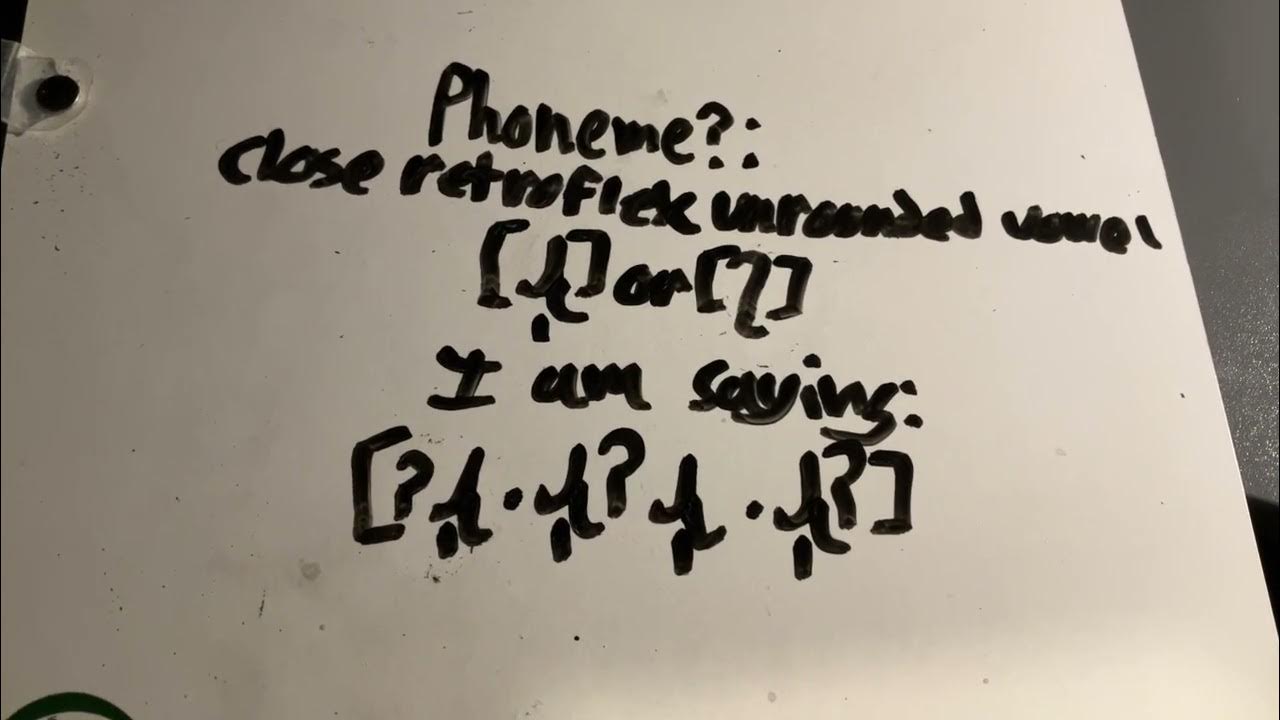 Phoneme?:
close retroflex unrounded vowel
[ɻ̩] or [ʅ]
I am saying:
[ʔɻ̩·ɻ̩ʔ ɻ̩·ɻ̩ʔ]